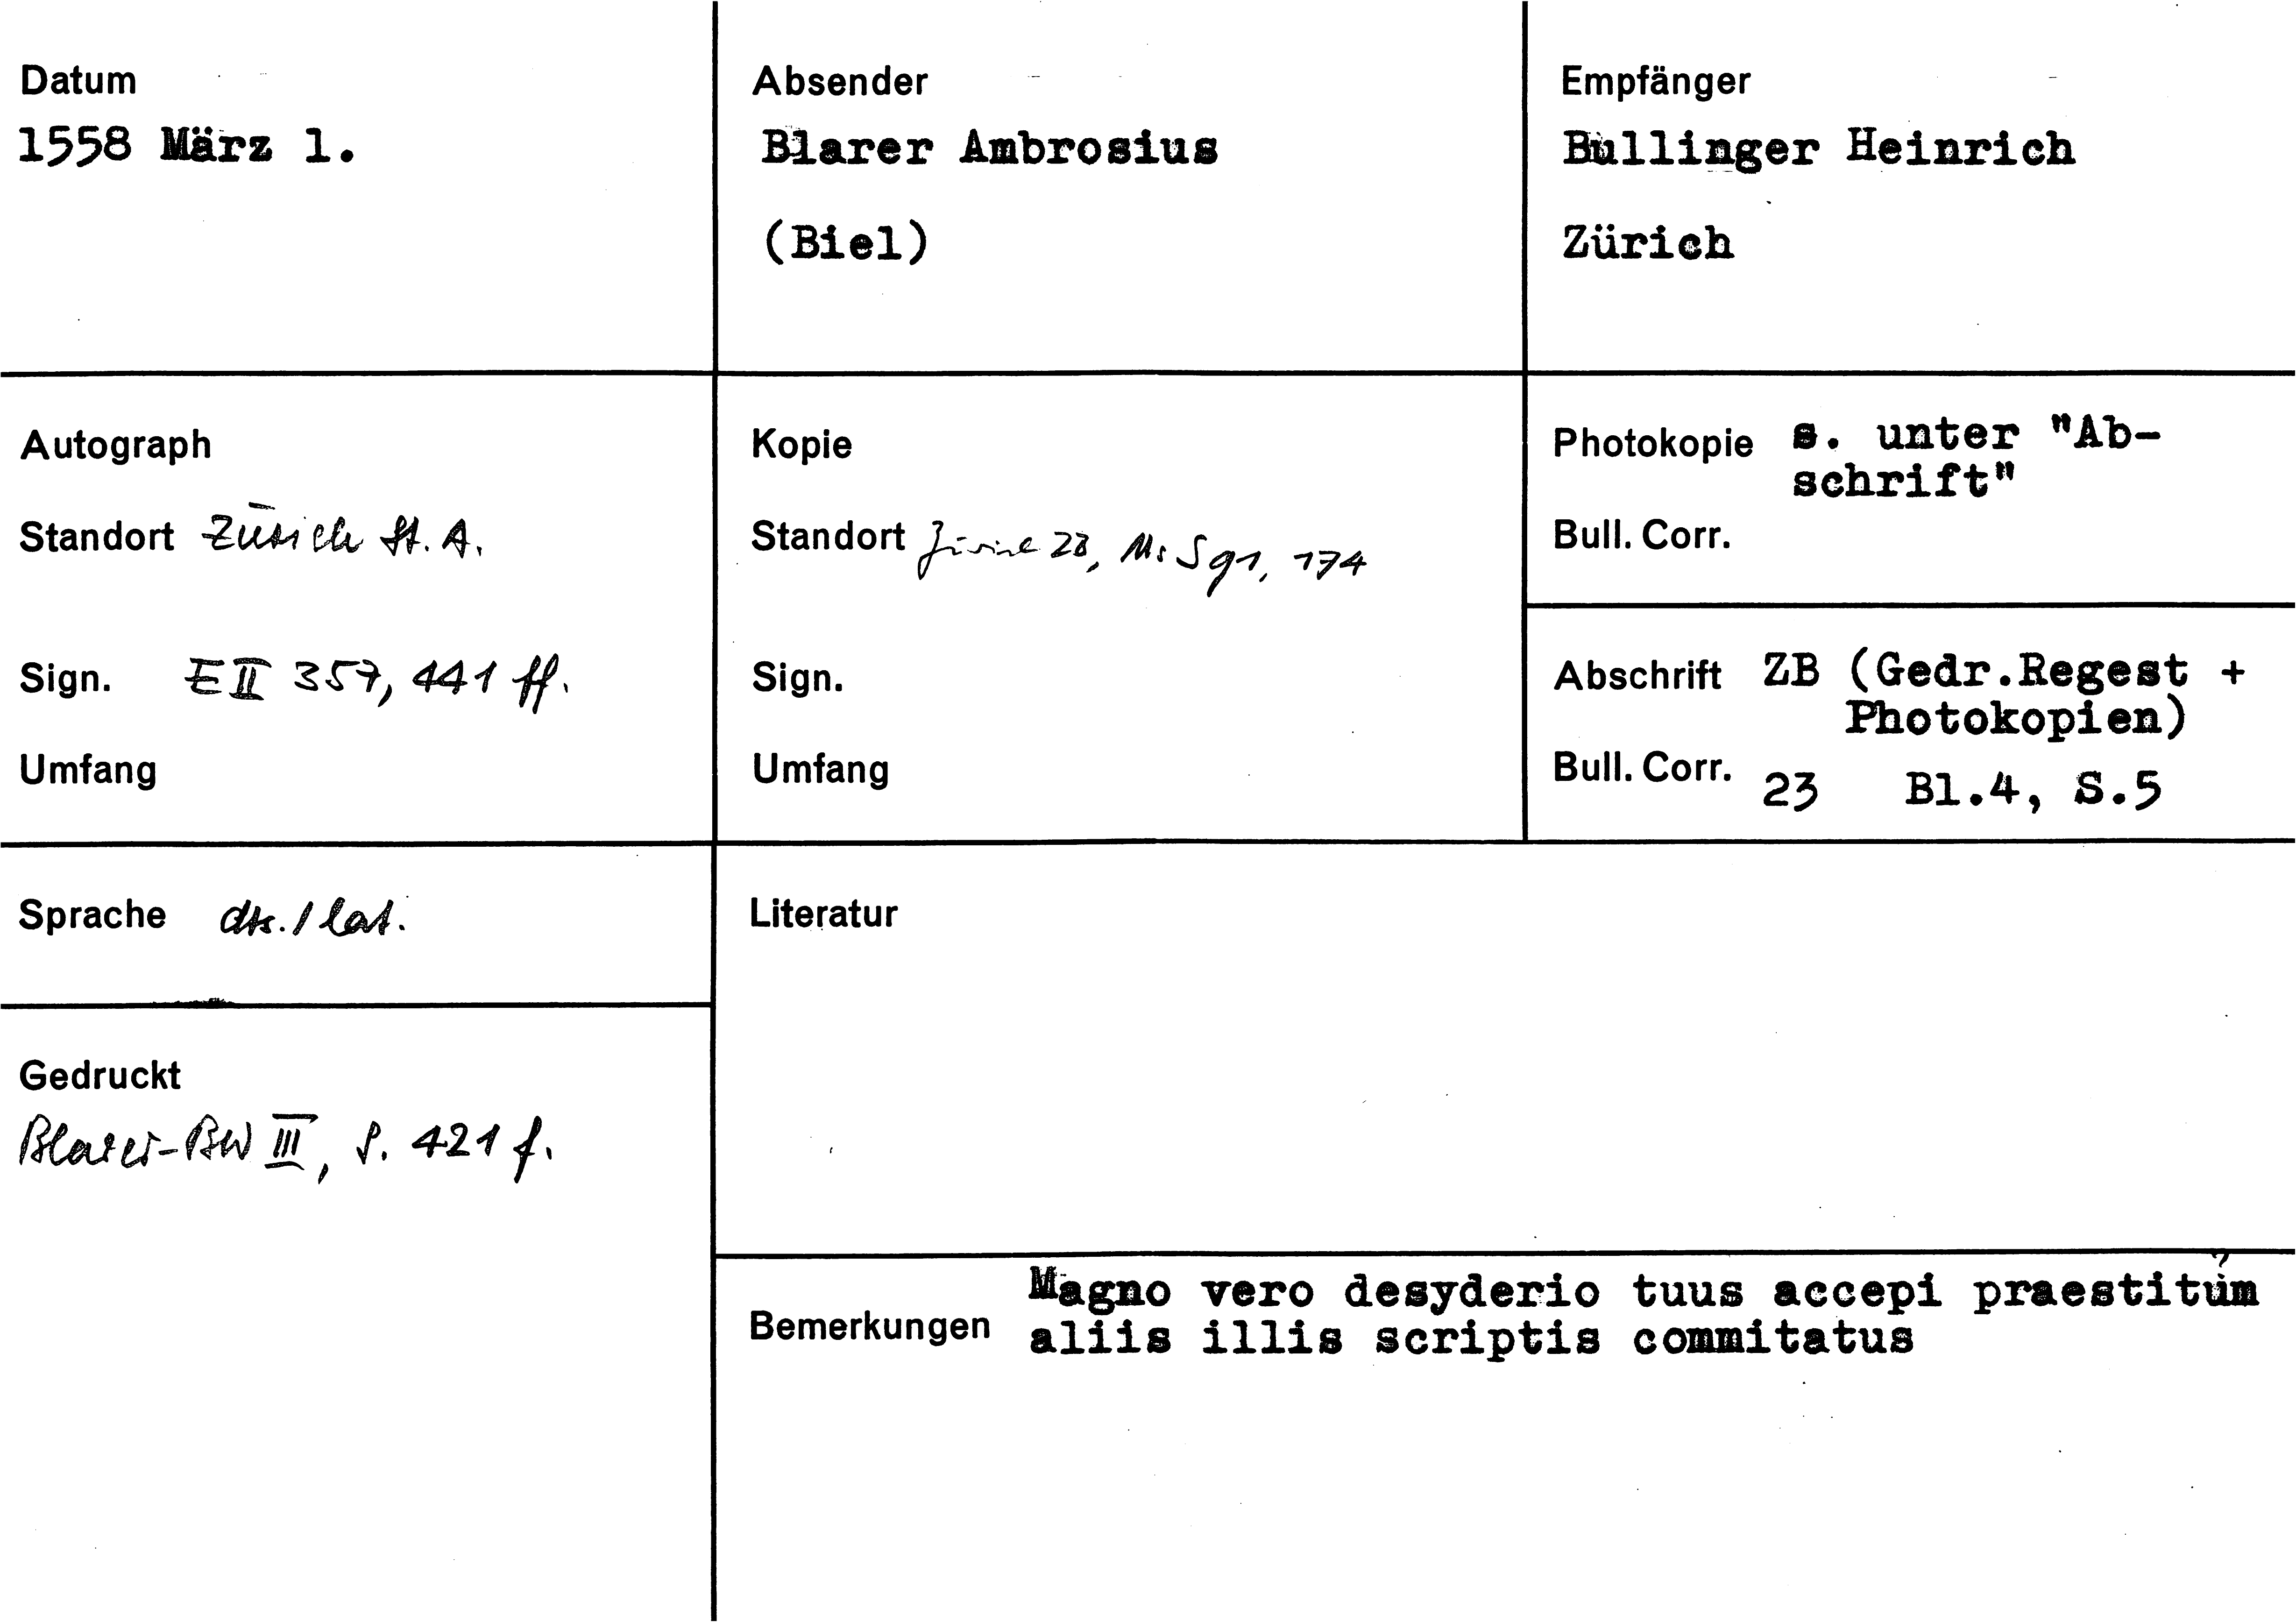 Datum
1558 März 1.
Absender
Blarer Ambrosius
(Biel)
Empfänger
Bullinger Heinrich
Zürich
Autograph
Standort Zürich St. A.
Sign. E II 357, 441 ff.
Umfang
Kopie
Standort Zürich ZB, Ms S 91, 174
Sign.
Umfang
Photokopie s. unter "Ab-
schrift"
Bull. Corr.
Abschrift ZB (Gedr.Regest +
Photokopien)
Bull. Corr. 23 Bl.4, S.5
Sprache dts. / lat.
Literatur
Gedruckt
Blarer-BW III, S. 421 f.
Bemerkungen
Magno vero desyderio tuus accepi praestitum
?
aliis illis scriptis commitatus